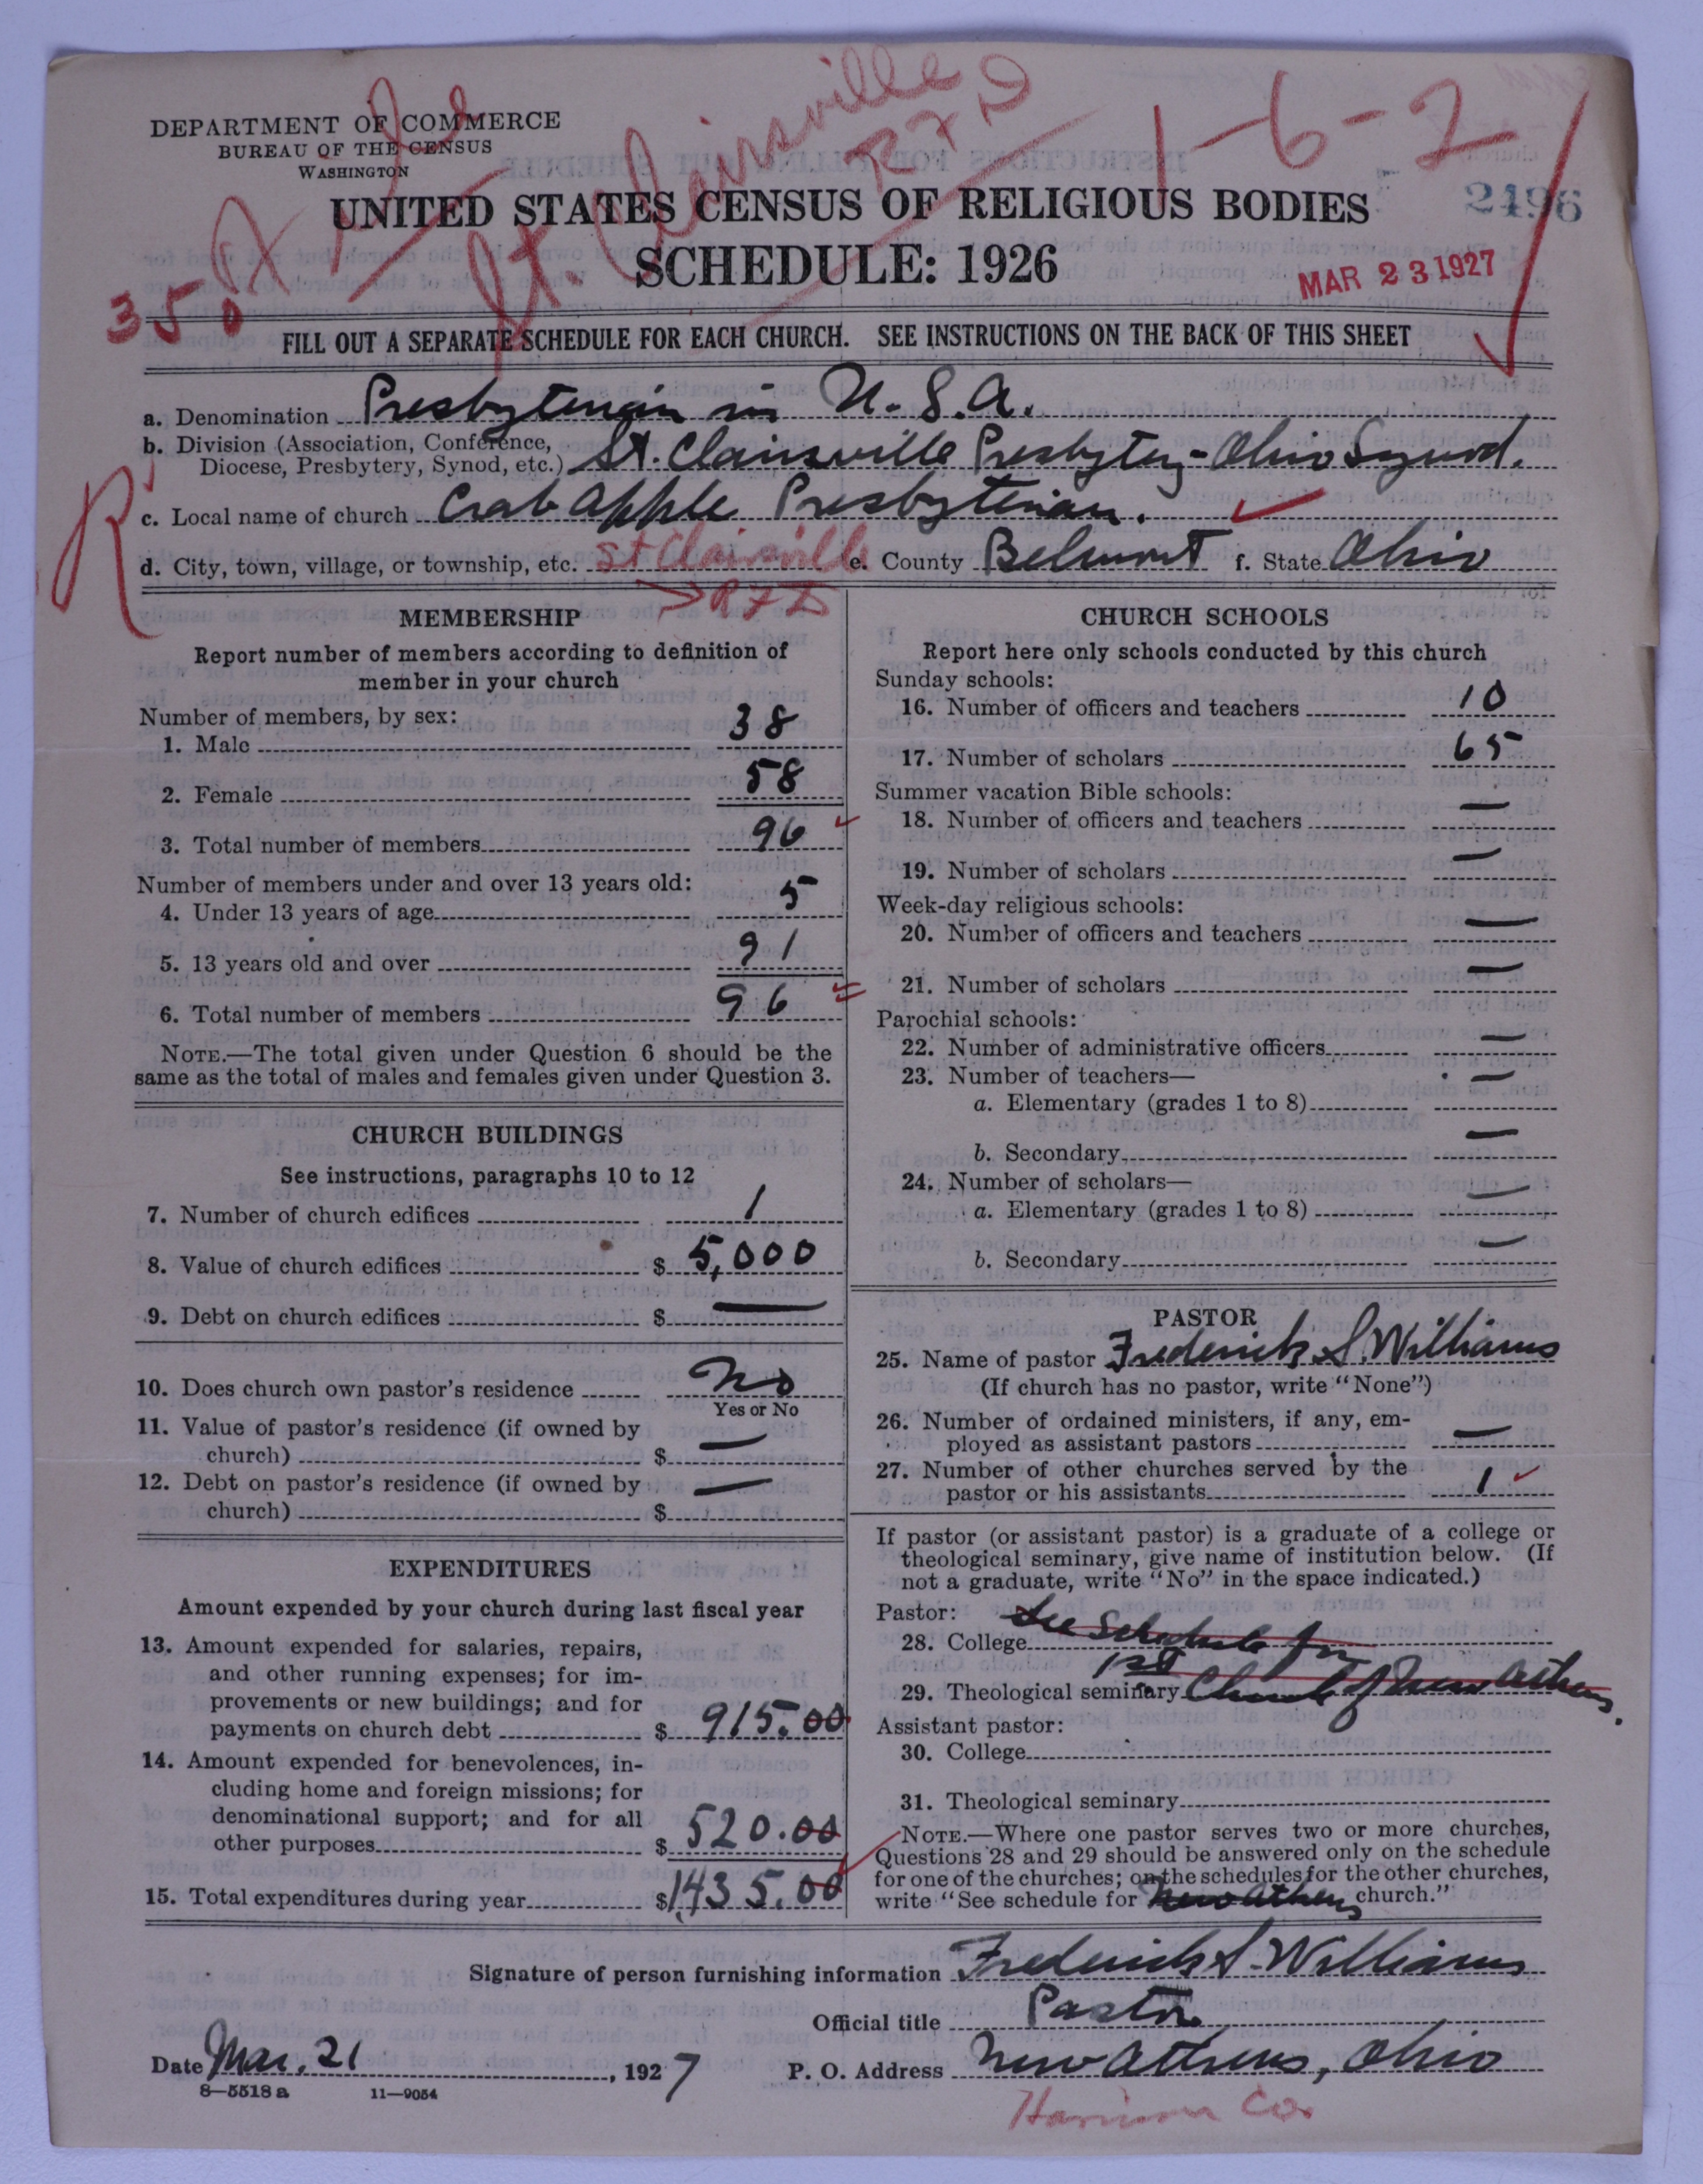 DEPARTMENT OF COMMERCE
BUREAU OF THE CENSUS
WASHINGTON
St. Clairsville
R F D
1-6-2
UNITED STATES CENSUS OF RELIGIOUS BODIES
2496
SCHEDULE: 1926
MAR 23 1927
350
FILL OUT A SEPARATE SCHEDULE FOR EACH CHURCH. SEE INSTRUCTIONS ON THE BACK OF THIS SHEET
a. Denomination Presbyterian in U.S.A.
b. Division (Association, Conference,
Diocese, Presbytery, Synod, etc.) St. Clairsville Presbytery - Ohio Synod.
R
c. Local name of church Crab apple Presbyterian.
d. City, town, village, or township, etc. St Clairsville e. County Belmont f. State Ohio
R F D
MEMBERSHIP
Report number of members according to definition of
member in your church
Number of members, by sex:
1. Male 38
2. Female 58
3. Total number of members 96
Number of members under and over 13 years old:
4. Under 13 years of age 5
5. 13 years old and over 91
6. Total number of members 96
NOTE.—The total given under Question 6 should be the
same as the total of males and females given under Question 3.
CHURCH BUILDINGS
See instructions, paragraphs 10 to 12
7. Number of church edifices 1
8. Value of church edifices $ 5,000
9. Debt on church edifices $ —
10. Does church own pastor's residence No
Yes or No
11. Value of pastor's residence (if owned by
church) $ —
12. Debt on pastor's residence (if owned by
church) $ —
EXPENDITURES
Amount expended by your church during last fiscal year
13. Amount expended for salaries, repairs,
and other running expenses; for im-
provements or new buildings; and for
payments on church debt $ 915.00
14. Amount expended for benevolences, in-
cluding home and foreign missions; for
denominational support; and for all
other purposes $ 520.00
15. Total expenditures during year $1,435.00
CHURCH SCHOOLS
Report here only schools conducted by this church
Sunday schools:
16. Number of officers and teachers 10
17. Number of scholars 65
Summer vacation Bible schools:
18. Number of officers and teachers —
19. Number of scholars —
Week-day religious schools:
20. Number of officers and teachers —
21. Number of scholars —
Parochial schools:
22. Number of administrative officers —
23. Number of teachers— —
a. Elementary (grades 1 to 8)
b. Secondary —
24. Number of scholars—
a. Elementary (grades 1 to 8) —
b. Secondary —
PASTOR
25. Name of pastor Frederick S. Williams
(If church has no pastor, write "None")
26. Number of ordained ministers, if any, em-
ployed as assistant pastors —
27. Number of other churches served by the
pastor or his assistants 1
If pastor (or assistant pastor) is a graduate of a college or
theological seminary, give name of institution below. (If
not a graduate, write "No" in the space indicated.)
Pastor:
28. College See Schedule for
1st
29. Theological seminary Church of New Athens.
Assistant pastor:
30. College
31. Theological seminary
NOTE.—Where one pastor serves two or more churches,
Questions 28 and 29 should be answered only on the schedule
for one of the churches; on the schedules for the other churches,
write "See schedule for New Athens church."
Signature of person furnishing information Frederick S. Williams
Official title Pastor
Date Mar. 21, 1927 P. O. Address New Athens, Ohio
8—5518 a 11—9054
Harrison Co.